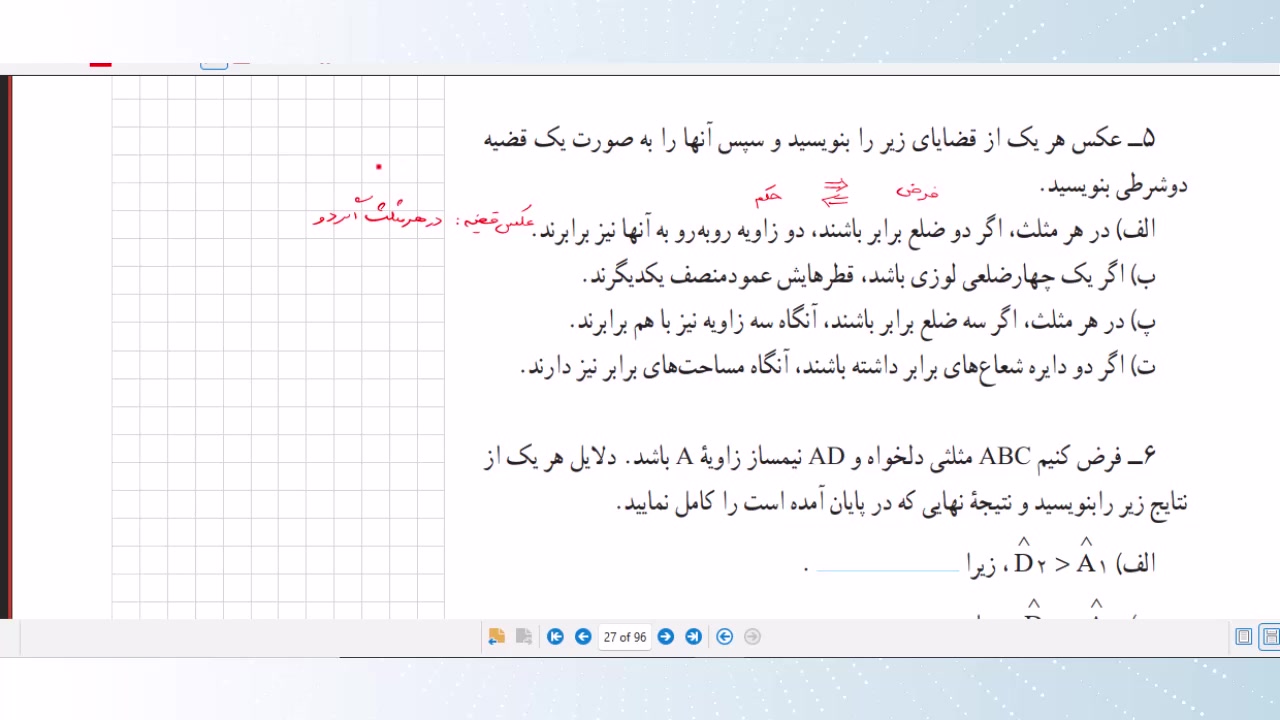 ۵ــ عکس هر یک از قضایای زیر را بنویسید و سپس آنها را به صورت یک قضیه
دوشرطی بنویسید.
فرض ⇄ حکم
الف) در هر مثلث، اگر دو ضلع برابر باشند، دو زاویه روبه‌رو به آنها نیز برابرند.
عکس قضیه: در هر مثلث اگر دو
ب) اگر یک چهارضلعی لوزی باشد، قطرهایش عمودمنصف یکدیگرند.
پ) در هر مثلث، اگر سه ضلع برابر باشند، آنگاه سه زاویه نیز با هم برابرند.
ت) اگر دو دایره شعاع‌های برابر داشته باشند، آنگاه مساحت‌های برابر نیز دارند.
۶ــ فرض کنیم ABC مثلثی دلخواه و AD نیمساز زاویهٔ A باشد. دلایل هر یک از
نتایج زیر رابنویسید و نتیجهٔ نهایی که در پایان آمده است را کامل نمایید.
الف) D̂۲ > Â۱ ، زیرا .
27 of 96